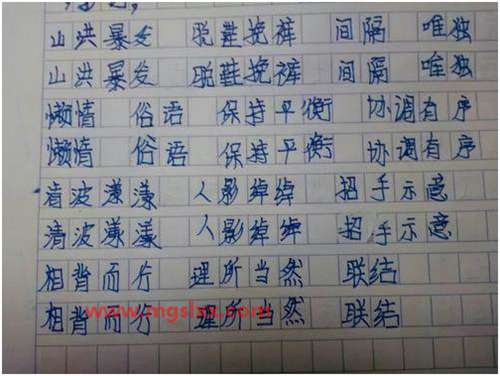 山洪暴发 脱鞋挽裤 间隔 唯独
山洪暴发 脱鞋挽裤 间隔 唯独
懒惰 俗语 保持平衡 协调有序
懒惰 俗语 保持平衡 协调有序
清波漾漾 人影绰绰 招手示意
清波漾漾 人影绰绰 招手示意
相背而行 理所当然 联结
相背而行 理所当然 联结
www.mgslsx.com